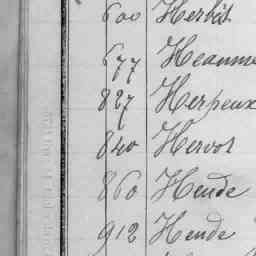 600 Herbet
677 Heaume
827 Herpeux
840 Hervot
860 Heude
912 Heude